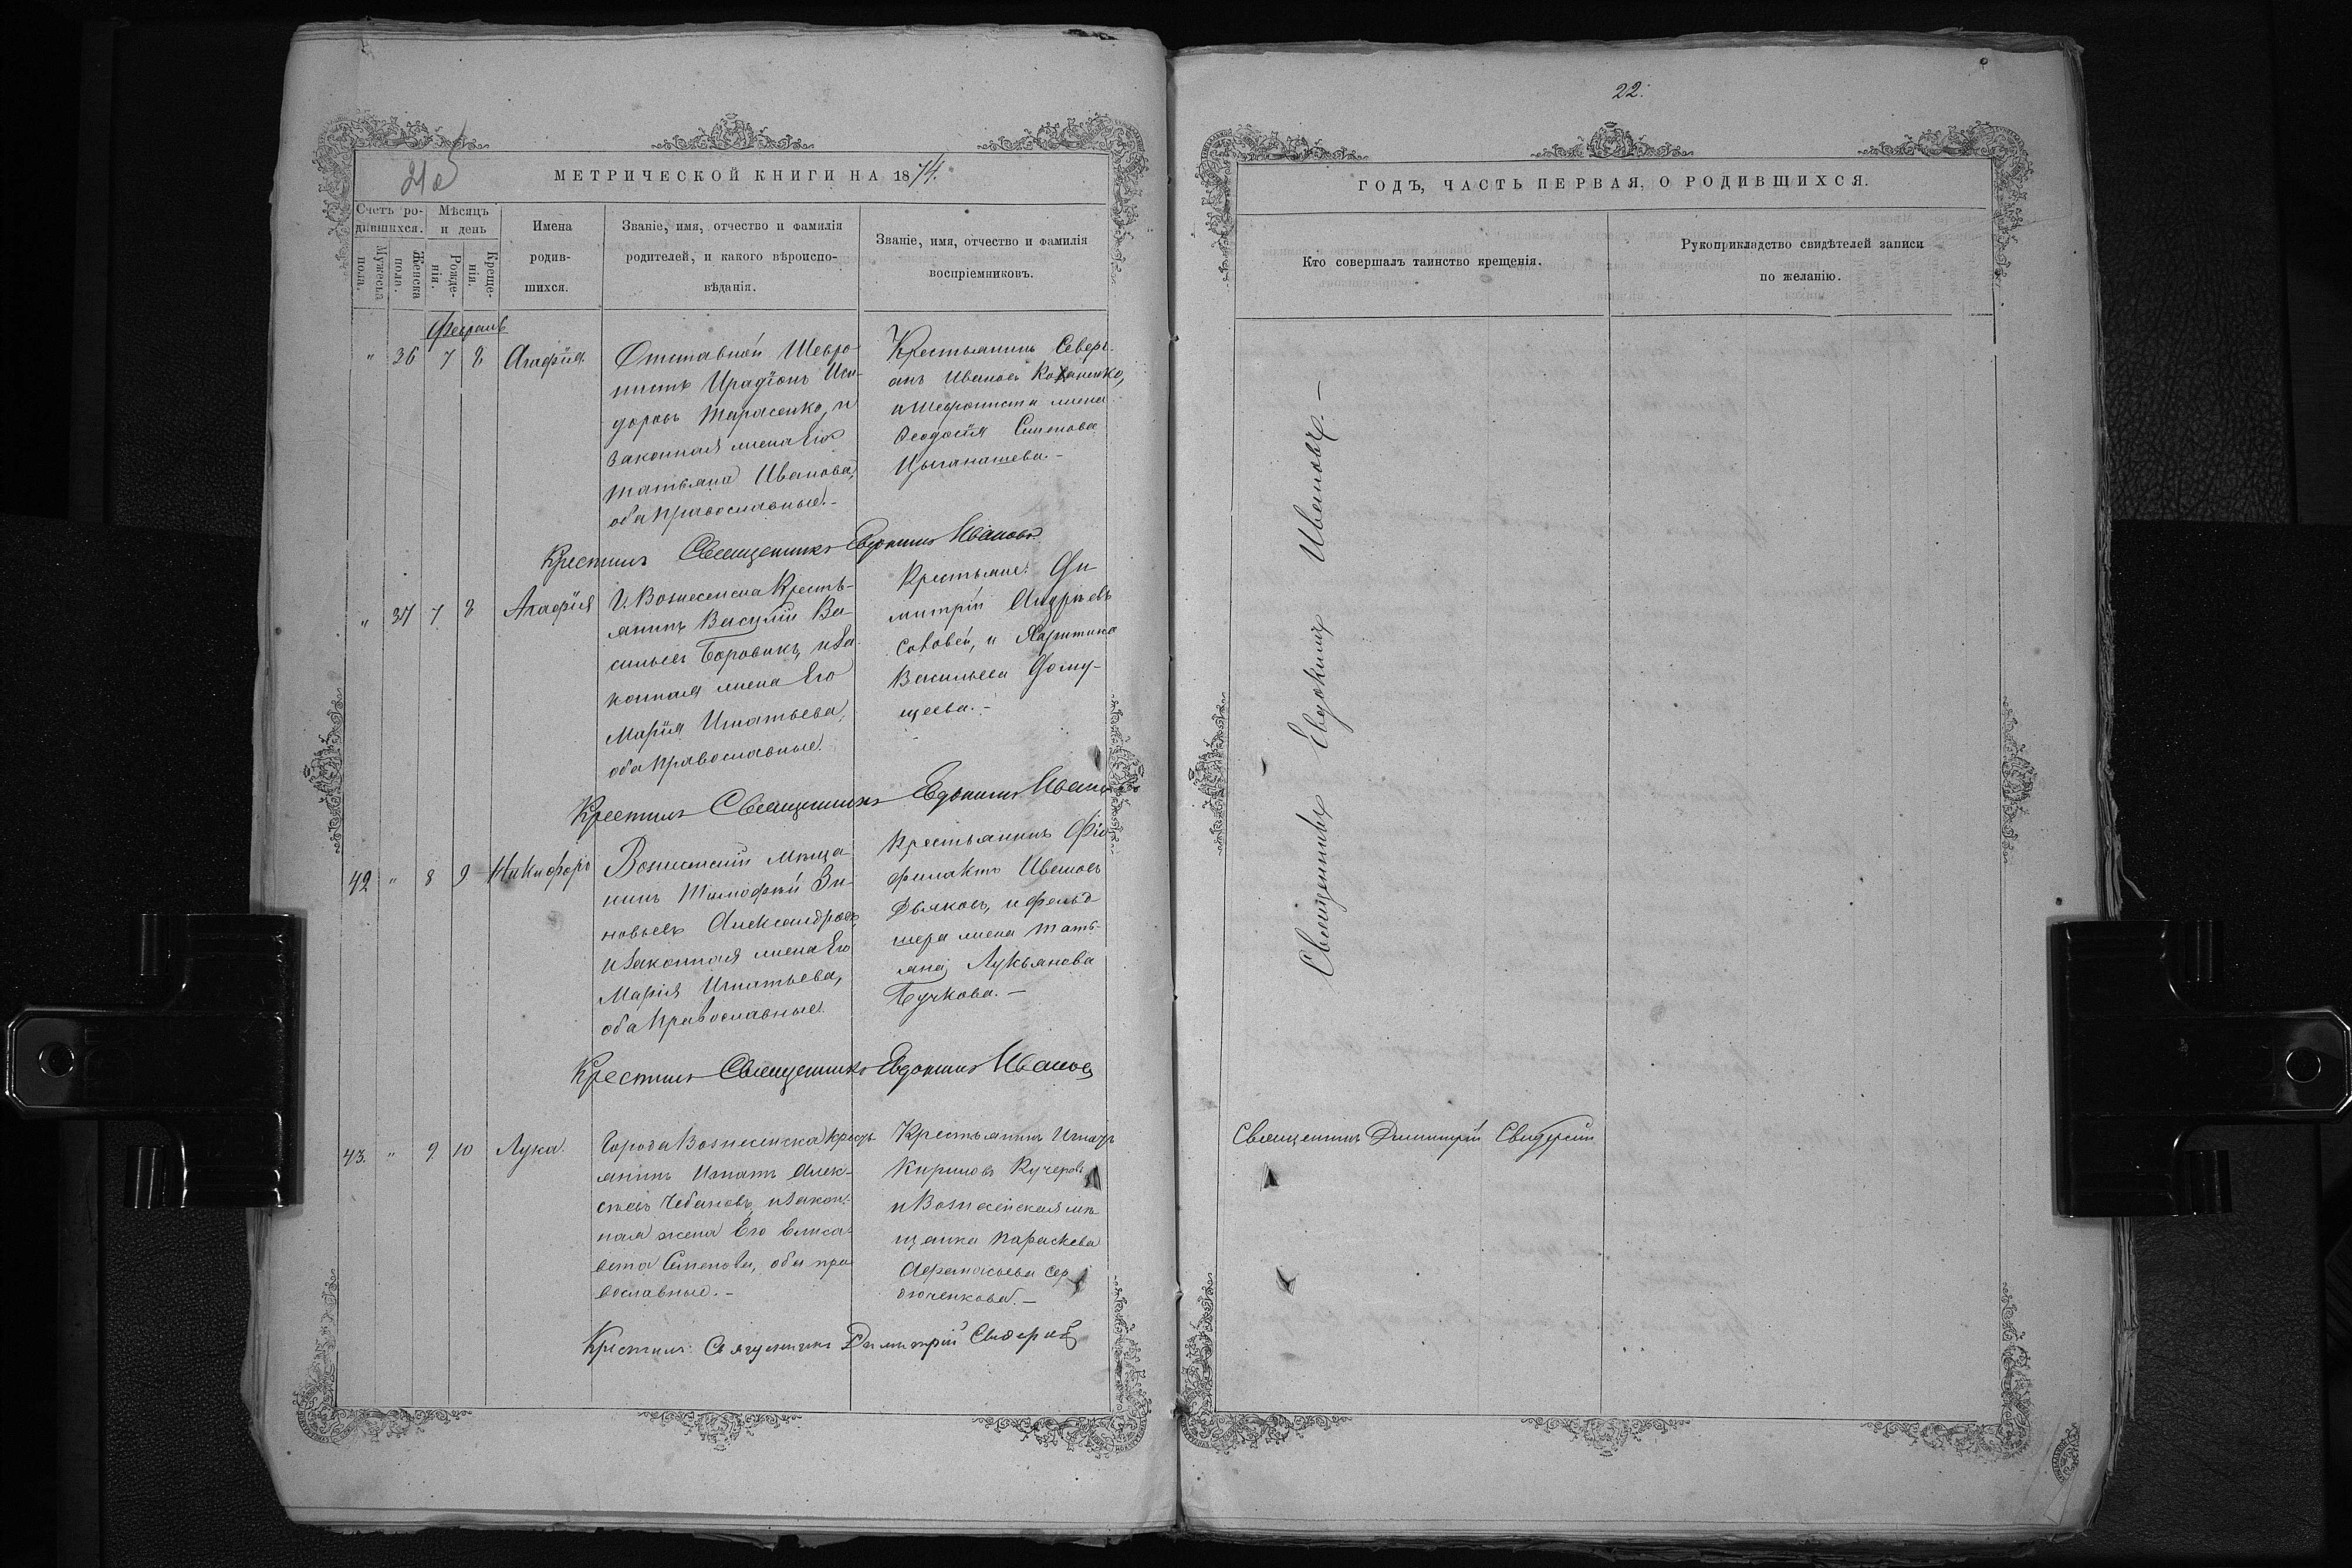 21 об
МЕТРИЧЕСКОЙ КНИГИ НА 1874.
Счетъ ро-
дившихся.
Мѣсяцъ
и день
Мужеска
пола.
Женска
пола.
Рожде-
нія.
Креще-
нія.
Имена
родив-
шихся.
Званіе, имя, отчество и фамилія
родителей, и какого вѣроиспо-
вѣданія.
Званіе, имя, отчество и фамилія
воспріемниковъ.
Февраль
" 36 7 8 Агафія
Отставной
Ирадіонъ Иси-
доровъ Тарасенко, и
законная жена Его
Татьяна Иванова,
оба Православные.-
Крестьянинъ Севері-
анъ Ивановъ Коханенко,
и жена
Феодосія
Цыганашева.-
Крестилъ Священникъ Евдокимъ Ивановъ
" 37 7 8 Агафія
Г. Вознесенска Кресть-
янинъ Василій Ва-
сильевъ Боровикъ, и за-
конная жена Его
Марія Игнатьева,
оба Православные.
Крестьяне: Ди-
митрій Андреевъ
Соловей, и Харитина
Васильева Дому-
щеева.-
Крестилъ Священникъ Евдокимъ Ивановъ
42 " 8 9 Никифоръ
Вознесенскій мѣща-
нинъ Тимофей Зи-
новьевъ Александровъ
и законная жена Его
Марія Игнатьева,
оба Православные.
Крестьянинъ Фіо-
филактъ Ивановъ
Дьяковъ, и фельд-
шера жена Тать-
яна Лукьянова
Бучкова.-
Крестилъ Священникъ Евдокимъ Ивановъ
43. " 9 10 Лука.
Города Вознесенска крест-
янинъ Игнатъ Алек-
сѣевъ Чебановъ, и закон-
ная жена Его Елиса-
вета Семенова, оба пра-
вославные.-
Крестьянинъ Игнатъ
Кириловъ Кучеровъ
и Вознесенская мѣ-
щанка Параскева
Афанасьева Сер-
дюченкова.-
Крестилъ Священникъ Димитрій
22.
ГОДЪ, ЧАСТЬ ПЕРВАЯ, О РОДИВШИХСЯ.
Кто совершалъ таинство крещенія.
Рукоприкладство свидѣтелей записи
по желанію.
Священникъ Евдокимъ Ивановъ.-
Священникъ Димитрій